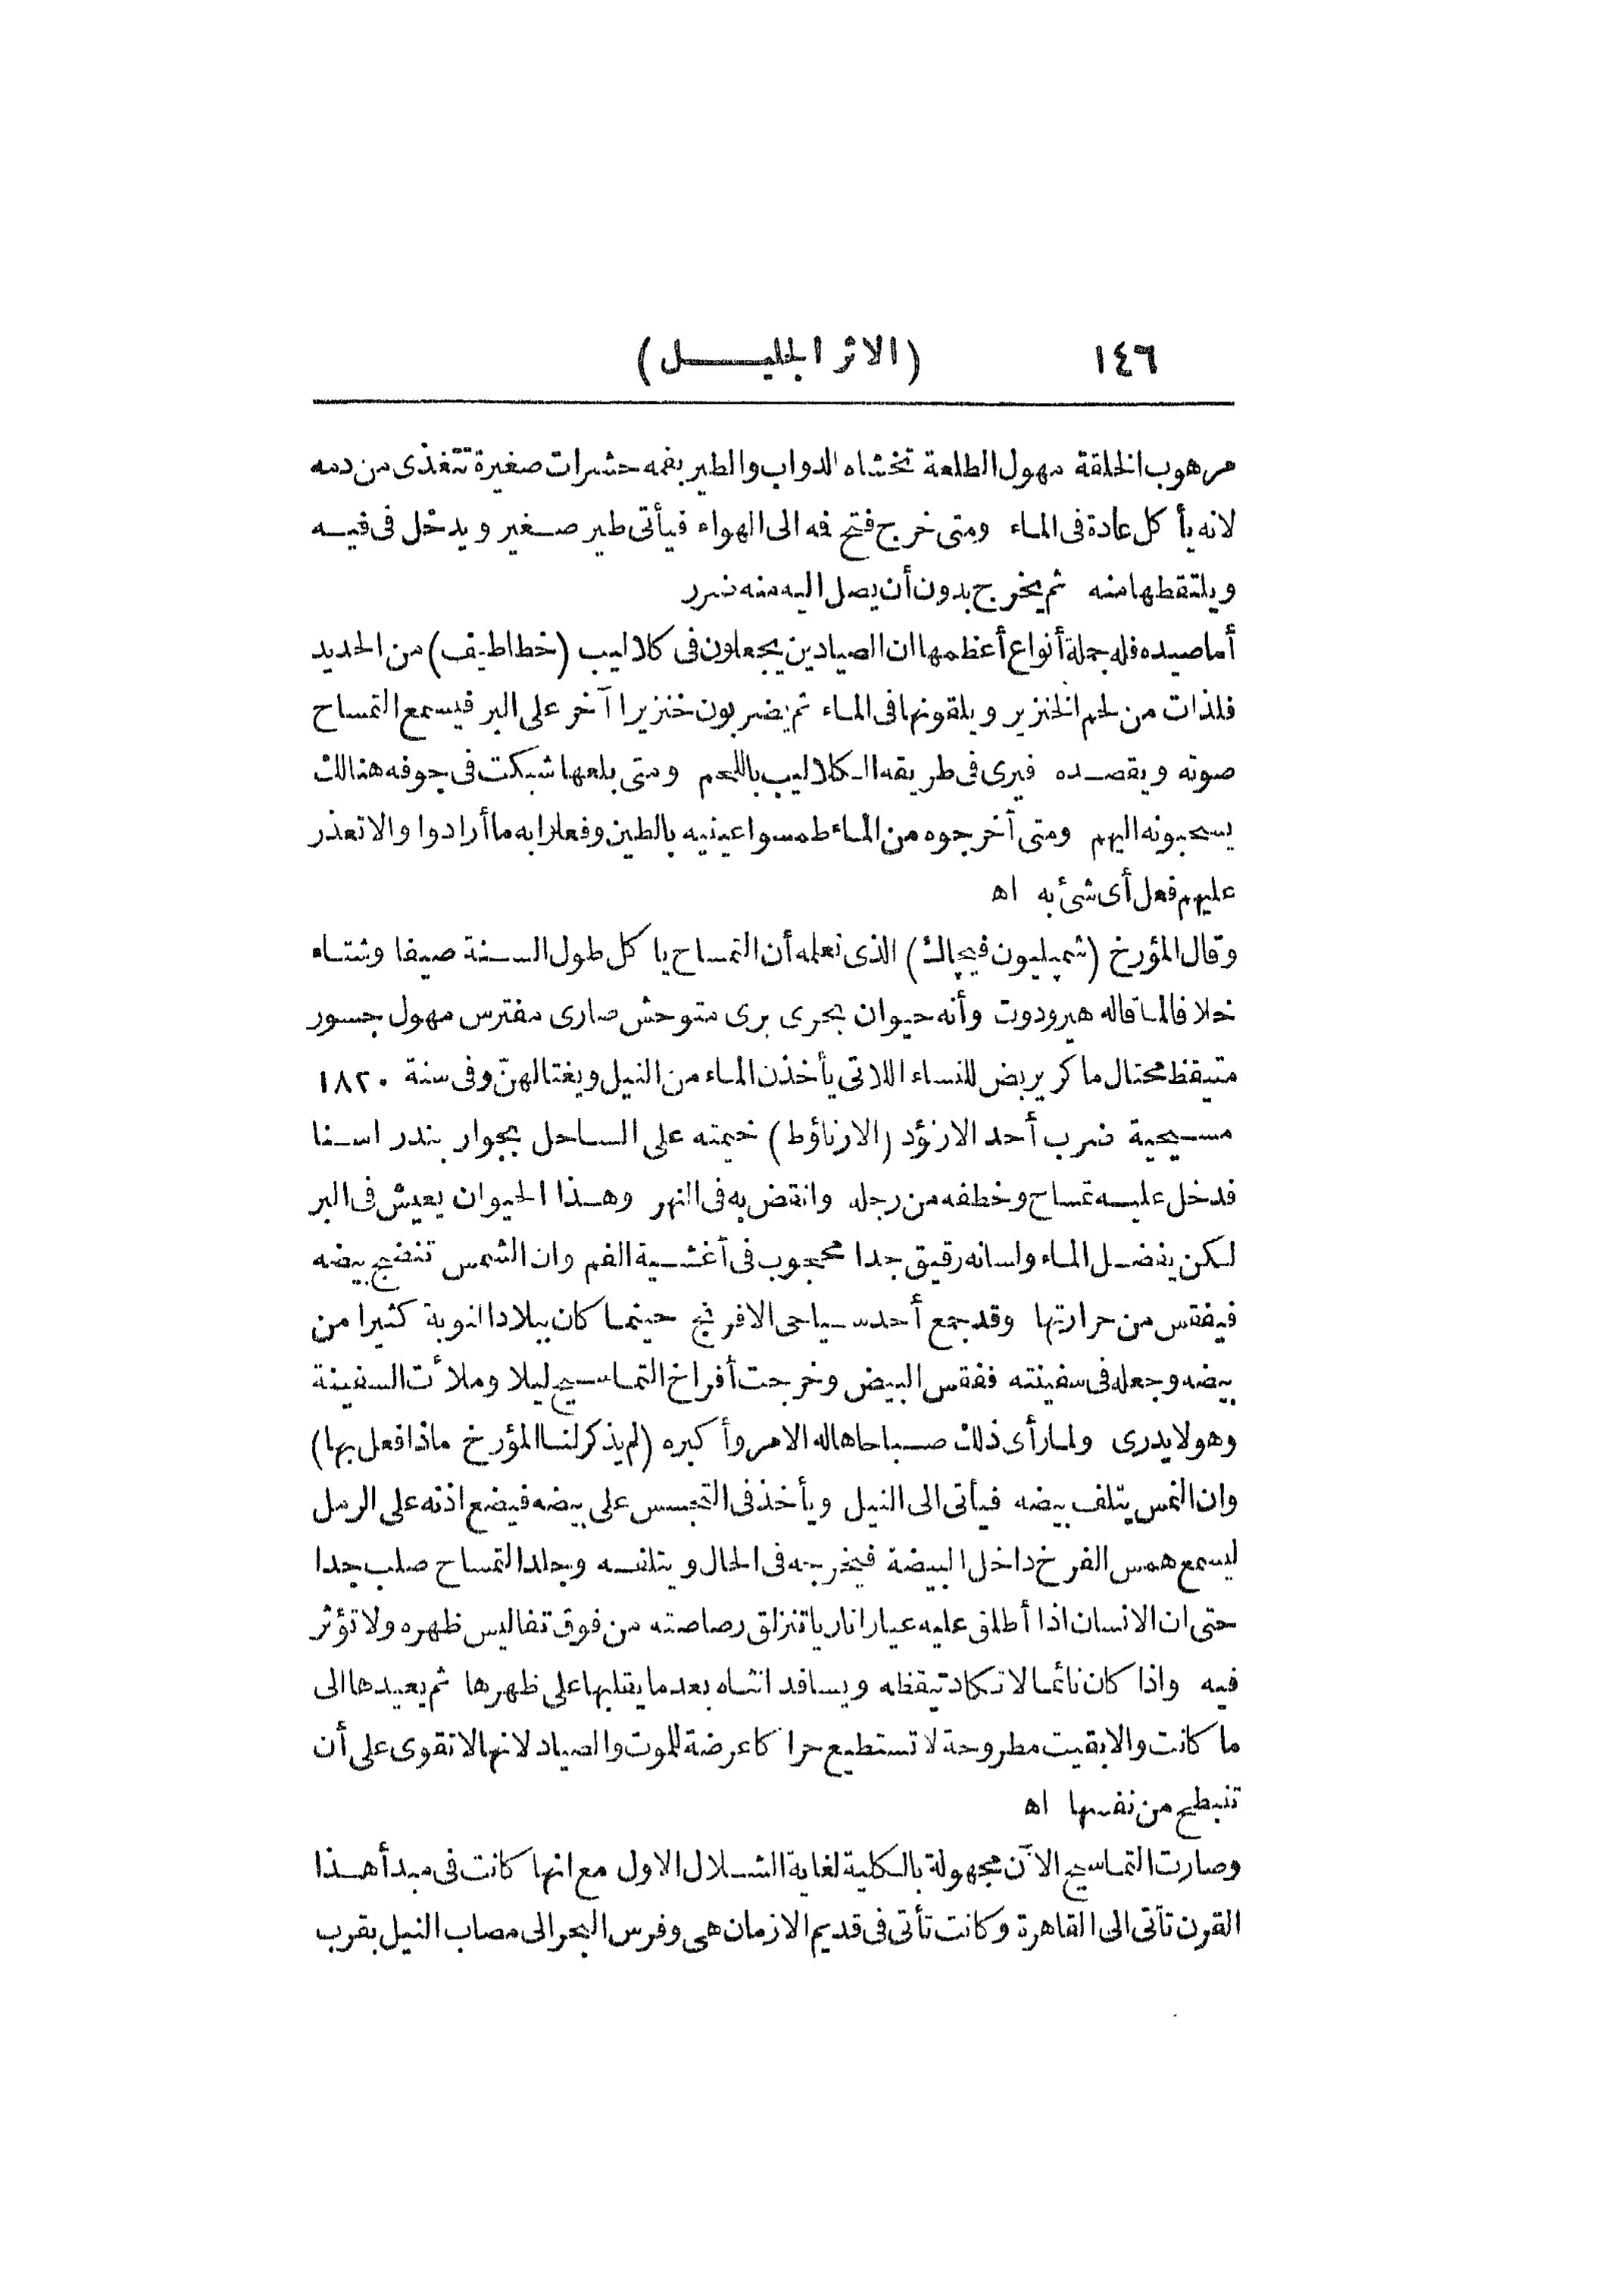 ١٤٦ (الاثر الجليل)
مرهوب الخلقة مهول الطلعة تخشاه الدواب والطير بفمه حشرات صغيرة تتغذى من دمه
لانه يأكل عادة فى الماء ومتى خرج فتح فه الى الهواء فيأتى طير صغير ويدخل فى فيه
ويلتقطها منه ثم يخرج بدون أن يصل اليه منه ضرر
أما صيده فله جملة أنواع أعظمها ان الصيادين يجعلون فى كلاليب (خطاطيف) من الحديد
فلذات من لحم الخنزير ويلقونها فى الماء ثم يضربون خنزيرا آخر على البر فيسمع التمساح
صوته ويقصده فيرى فى طريقه الكلاليب باللحم ومتى بلعها شبكت فى جوفه هنالك
يسحبونه اليهم ومتى أخرجوه من الماء طمسوا عينيه بالطين وفعلوا به ما أرادوا والا تعذر
عليهم فعل أى شئ به اه
وقال المؤرخ (شمپليون فيچاك) الذى نعلمه أن التمساح يا كل طول السنة صيفا وشتاء
خلافا لما قاله هيرودوت وأنه حيوان بحرى برى متوحش ضارى مفترس مهول جسور
متيقظ محتال ماكر يربض للنساء اللاتى يأخذن الماء من النيل ويغتالهنّ وفى سنة ١٨٢٠
مسيحية ضرب أحد الارنؤد (الارناؤط) خيمته على الساحل بجوار بندر اسنا
فدخل عليه تمساح وخطفه من رجله وانقض به فى النهر وهذا الحيوان يعيش فى البر
لكن يفضل الماء ولسانه رقيق جدا محجوب فى أغشية الفم وان الشمس تنضج بيضه
فيفقس من حرارتها وقد جمع أحد سياحى الافرنج حينما كان ببلاد النوبة كثيرا من
بيضه وجعله فى سفينته ففقس البيض وخرجت أفراخ التماسيح ليلا وملأت السفينة
وهو لا يدرى ولما رأى ذلك صباحا هاله الامر وأكبره (لم يذكر لنا المؤرخ ماذا فعل بها)
وان النمس يتلف بيضه فيأتى الى النيل ويأخذ فى التجسس على بيضه فيضع اذنه على الرمل
ليسمع همس الفرخ داخل البيضة فيخرجه فى الحال ويتلفه وجلد التمساح صلب جدا
حتى ان الانسان اذا أطلق عليه عيارا ناريا تنزلق رصاصته من فوق تفاليس ظهره ولا تؤثر
فيه واذا كان نائما لا تكاد تيقظه ويسافد انثاه بعد ما يقلبها على ظهرها ثم يعيدها الى
ما كانت والا بقيت مطروحة لا تستطيع حراكا عرضة للموت والصياد لانها لا تقوى على أن
تنبطح من نفسها اه
وصارت التماسيح الآن مجهولة بالكلية لغاية الشلال الاول مع انها كانت فى مبدأ هذا
القرن تأتى الى القاهرة وكانت تأتى فى قديم الازمان هى وفرس البحر الى مصاب النيل بقرب